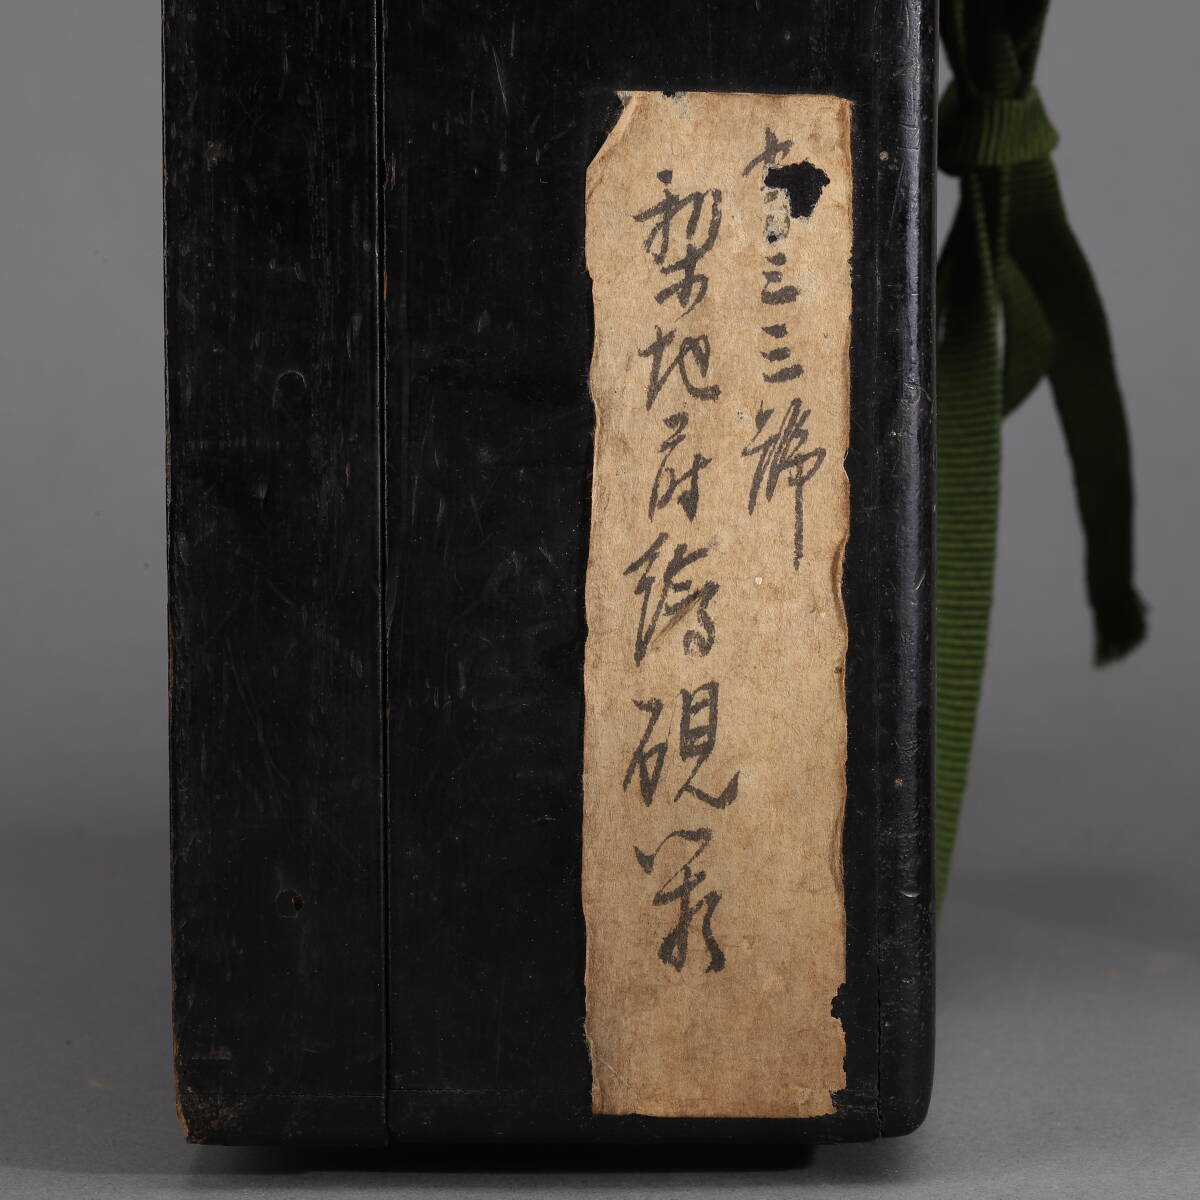 三三號
梨地蒔繪硯箱